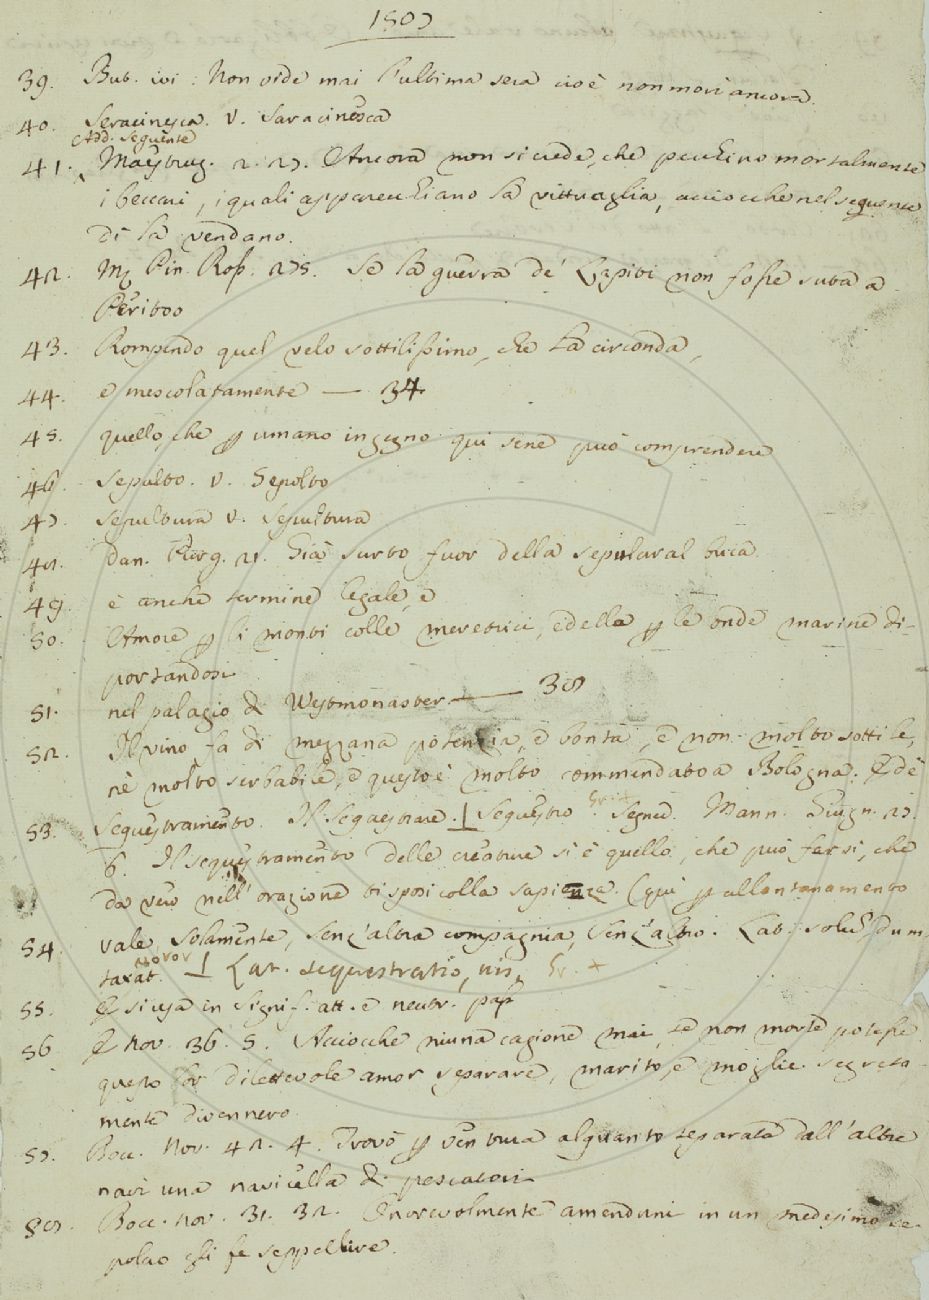 1507
39. But. ivi: Non vide mai l'ultima sera cioè non morì ancora.
40. Seracinesca. V. Saracinesca
Add. seguente
41. Maestruz. 2. 27. Ancora non si crede, che pecchino mortalmente
i beccari, i quali apparecchiano la vittuaglia, acciocchè nel seguente
dì la vendano.
42. M. Pin. Ros. 275. Se la guerra de' Lapiti non fosse suta a
Peritoo
43. Rompendo quel velo sottilissimo, che la circonda,
44. e mescolatamente — 34
45. quello, che p umano ingegno qui sene può comprendere
46. sepulto. V. Sepolto
47. sepultura V. sepultura
48. Dan. Purg. 21. Già surto fuor della sepulcral buca.
49. è anche termine legale, e
50. Amore p li monti colle meretrici, e della p le onde marine di-
portandosi
51. nel palagio di Westmonaster — 38
52. Il vino fa di mezzana potenzia, e bontà, e non molto sottile,
nè molto serbabile, e questo è molto commendato a Bologna. E de
53. Sequestramento. Il Sequestrare. ⊥ Sequestro. Gr. + Segned. Mann. Giugn. 27.
6. Il sequestramento delle creature si è quello che può farsi, che
da vero nell'orazione ti sposi colla sapienza. (qui p allontanamento
54. vale, solamente, senz'altra compagnia, senz'altro. Lat. solu, dum
taxat. ⊥ Lat. sequestratio, nis, Gr. +
55. E si usa in signif. att. e neutr. pass
56. E nov. 36. 5. Acciocchè niuna cagione mai, se non morte potesse
questo lor dilettevole amor separare, marito, e moglie segreta-
mente divennero.
57. Bocc. Nov. 42. 4. Trovò p ventura alquanto separata dall'altre
navi una navicella di pescatori
58. Bocc. nov. 31. 32. Onorevolmente amenduni in un medesimo se-
polcro gli fe seppellire.